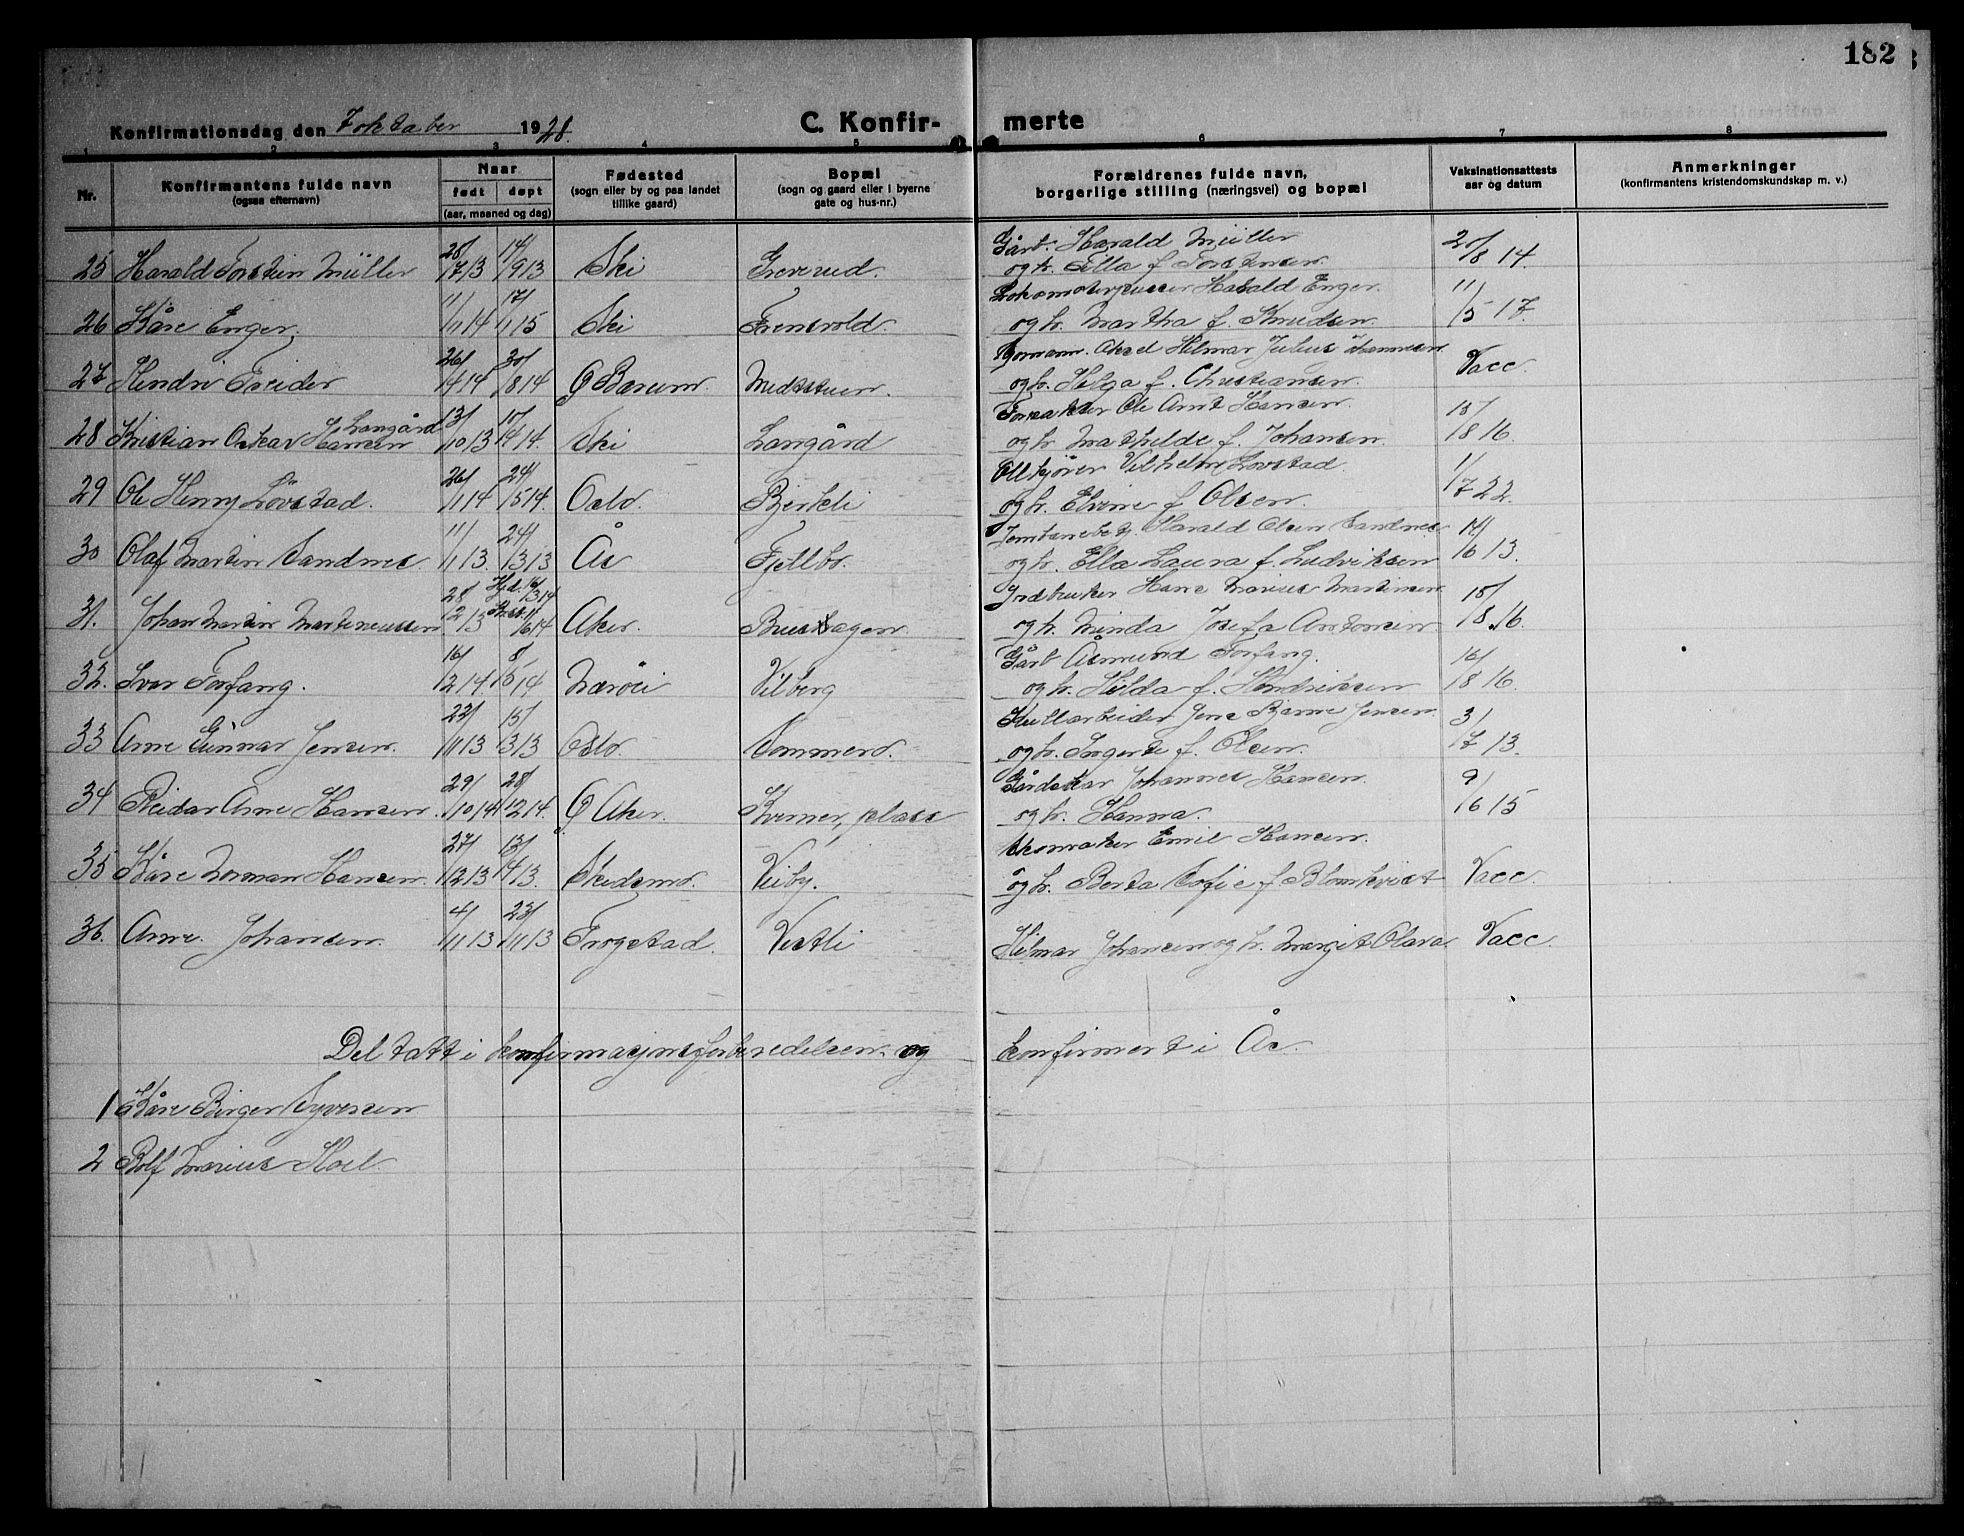 182
Konfirmationsdag den 7 oktober 1928.
C. Konfir-merte
1 2 3 4 5 6 7 8
Nr.
Konfirmantens fulde navn
(ogsaa efternavn)
Naar
født døpt
(aar, maaned og dag)
Fødested
(sogn eller by og paa landet
tillike gaard)
Bopæl
(sogn og gaard eller i byerne
gate og hus-nr.)
Forældrenes fulde navn,
borgerlige stilling (næringsvei) og bopæl
Vaksinationsattests
aar og datum
Anmerkninger
(konfirmantens kristendomskundskap m. v.)
25 Harald Torstein Müller 28/7 13 14/9 13 Ski Greverud. Gårb. Harald Müller 20/8 14.
og h. Ella f. Torstensen
26 Kåre Enger. 11/11 14 17/1 15 Ski Finstvold. Lokomotivpusser Harald Enger. 11/5 17.
og h. Martha f. Knudsen.
27 Hindri Freider 26/4 14 30/8 14 Ø Bærum Midtstuen. Aksel Hilmar Julius Johannesen Vacc
og h. Helga f. Christiansen.
28 Kristian Oskar Hansen Langård 13/10 13 10/4 14. Ski Langård Ole Arnt Hansen. 18/8 16.
og h. Mathilde f. Johansen.
29 Ole Henry Lövstad. 26/1 14 24/5 14. Oslo. Bjerkeli Vilhelm Lövstad. 1/7 22.
og h. Elvine f. Olsen.
30 Olaf Martin Sandnes. 11/1 13. 24/3 13 Ås Fjellbo. Jernbanebetj. Harald Olsen Sandnes 14/6 13.
og h. Ella Laura f. Ludviksen
31. Johan Martin Martineussen 28/12 13 Hjd. 16/3 14 11/6 14 Aker. Bushagen Jrdbruker Hans Marius Martinsen 18/8 16.
og h. Minda Josefa Antonsen.
32. Ivar Forfang. 16/2 14. 8/5 14 Næröi Vilberg Gårb Åsmund Forfang. 16/8 16.
og h. Hilda f. Hendriksen
33 Arne Gunnar Jensen. 23/1 13 15/3 13 Oslo. Sommero. Jens Bjarne Jensen. 3/7 13.
og h. Ingerte f. Olsen.
34 Reidar Arne Hansen. 29/10 14 28/12 14. Ø Aker. Kverner, plass Gårdskar Johannes Hansen 9/6 15
og h. Hanna.
35 Kåre Norman Hansen. 27/12 13 13/4 13. Skedsmo. Veiby. Skomaker Emil Hansen.
og h. Berta Sofie f Blomkvist Vacc.
36. Arne Johansen. 4/11 13 23/11 13 Trogstad. Vestli Hilmar Johansen og h. Margit Olava Vacc.
Deltatt i konfirmasjonsforberedelsen og konfirmert i Ås.
1 Kåre Birger Syversen
2 Rolf Marius Hoel